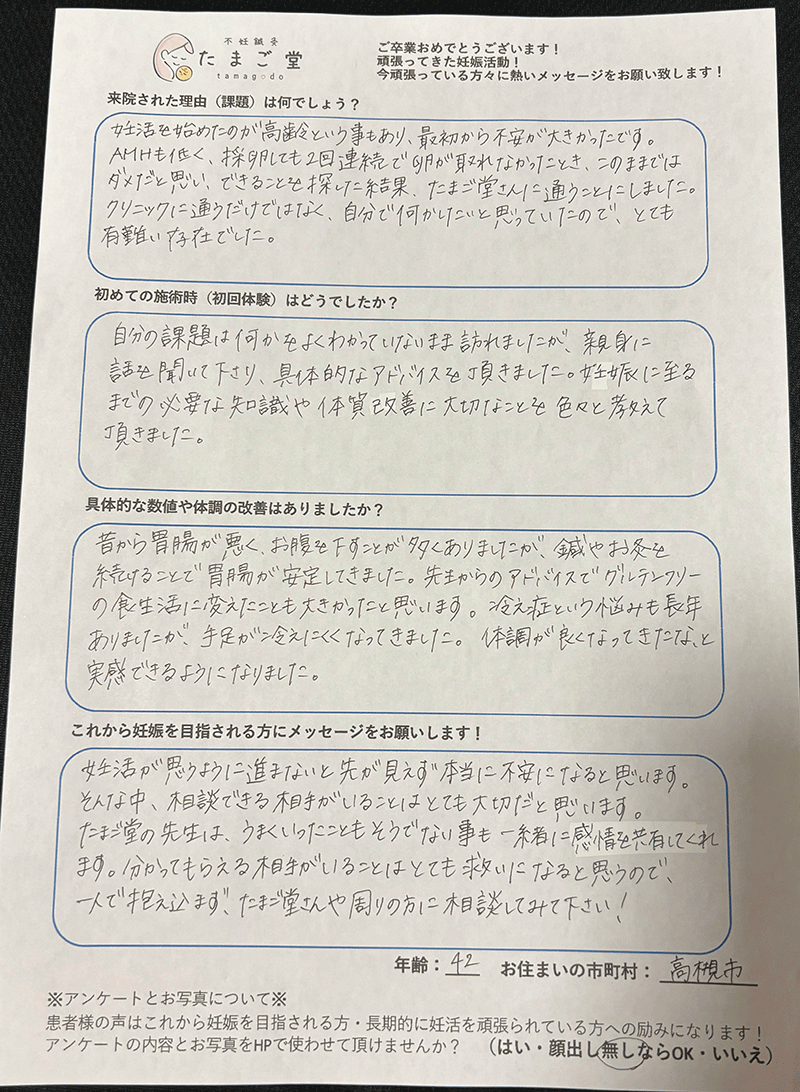 不妊鍼灸
たまご堂
tamagodo
ご卒業おめでとうございます！
頑張ってきた妊娠活動！
今頑張っている方々に熱いメッセージをお願い致します！
来院された理由（課題）は何でしょう？
妊活を始めたのが高齢という事もあり、最初から不安が大きかったです。
AMHも低く、採卵しても2回連続で卵が取れなかったとき、このままでは
ダメだと思い、できることを探した結果、たまご堂さんに通うことにしました。
クリニックに通うだけではなく、自分で何かしたいと思っていたので、とても
有難い存在でした。
初めての施術時（初回体験）はどうでしたか？
自分の課題は何かをよくわかっていないまま訪れましたが、親身に
話を聞いて下さり、具体的なアドバイスを頂きました。妊娠に至る
までの必要な知識や体質改善に大切なことを色々と教えて
頂きました。
具体的な数値や体調の改善はありましたか？
昔から胃腸が悪く、お腹を下すことが多くありましたが、鍼やお灸を
続けることで胃腸が安定してきました。先生からのアドバイスでグルテンフリー
の食生活に変えたことも大きかったと思います。冷え症という悩みも長年
ありましたが、手足が冷えにくくなってきました。体調が良くなってきたな、と
実感できるようになりました。
これから妊娠を目指される方にメッセージをお願いします！
妊活が思うように進まないと先が見えず本当に不安になると思います。
そんな中、相談できる相手がいることはとても大切だと思います。
たまご堂の先生は、うまくいったこともそうでない事も一緒に感情を共有してくれ
ます。分かってもらえる相手がいることはとても救いになると思うので、
一人で抱え込まず、たまご堂さんや周りの方に相談してみて下さい！
年齢：42 お住まいの市町村：高槻市
※アンケートとお写真について※
患者様の声はこれから妊娠を目指される方・長期的に妊活を頑張られている方への励みになります！
アンケートの内容とお写真をHPで使わせて頂けませんか？ （はい・顔出し無しならOK・いいえ）